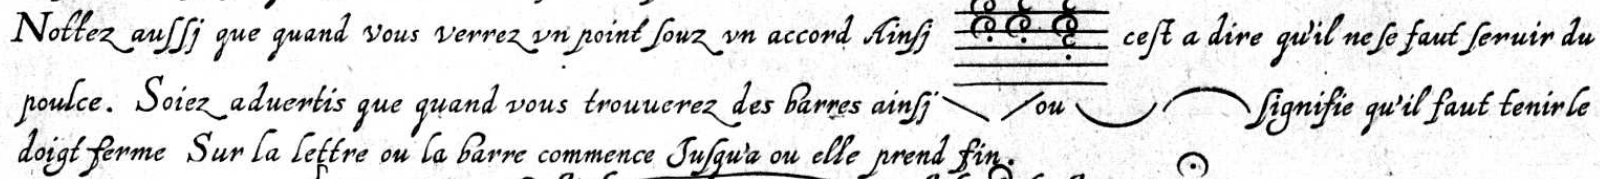 Nottez aussj que quand vous verrez vn point souz vn accord Ainsj cest a dire qu'il ne se faut seruir du
poulce. Soiez aduertis que quand vous trouuerez des barres ainsj ou signifie qu'il faut tenir le
doigt ferme Sur la lettre ou la barre commence Jusqu'a ou elle prend fin.